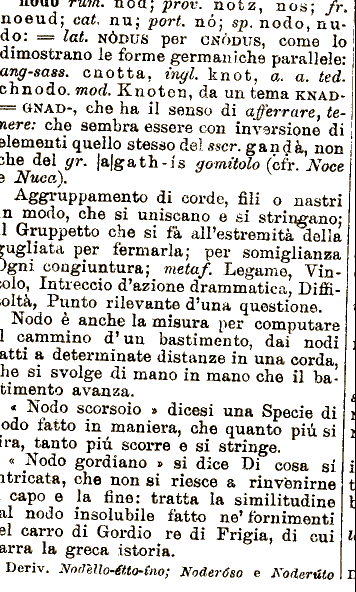 nodo rum. nod; prov. notz, nos; fr.
noeud; cat. nu; port. nó; sp. nodo, nu-
do: = lat. NÒDUS per CNÒDUS, come lo
dimostrano le forme germaniche parallele:
ang-sass. cnotta, ingl. knot, a. a. ted.
chnodo. mod. Knoten, da un tema KNAD-
= GNAD-, che ha il senso di afferrare, te-
nere: che sembra essere con inversione di
elementi quello stesso del sscr. gandà, non
che del gr. [a]gath-ís gomitolo (cfr. Noce
e Nuca).
Aggruppamento di corde, fili o nastri
in modo, che si uniscano e si stringano;
il Gruppetto che si fà all'estremità della
gugliata per fermarla; per somiglianza
Ogni congiuntura; metaf. Legame, Vin-
colo, Intreccio d'azione drammatica, Diffi-
coltà, Punto rilevante d'una questione.
Nodo è anche la misura per computare
il cammino d'un bastimento, dai nodi
fatti a determinate distanze in una corda,
che si svolge di mano in mano che il ba-
stimento avanza.
« Nodo scorsoio » dicesi una Specie di
nodo fatto in maniera, che quanto piú si
tira, tanto piú scorre e si stringe.
« Nodo gordiano » si dice Di cosa sí
intricata, che non si riesce a rinvenirne
il capo e la fine: tratta la similitudine
dal nodo insolubile fatto ne' fornimenti
del carro di Gordio re di Frigia, di cui
narra la greca istoria.
Deriv. Nodèllo-étto-íno; Noderóso e Noderúto